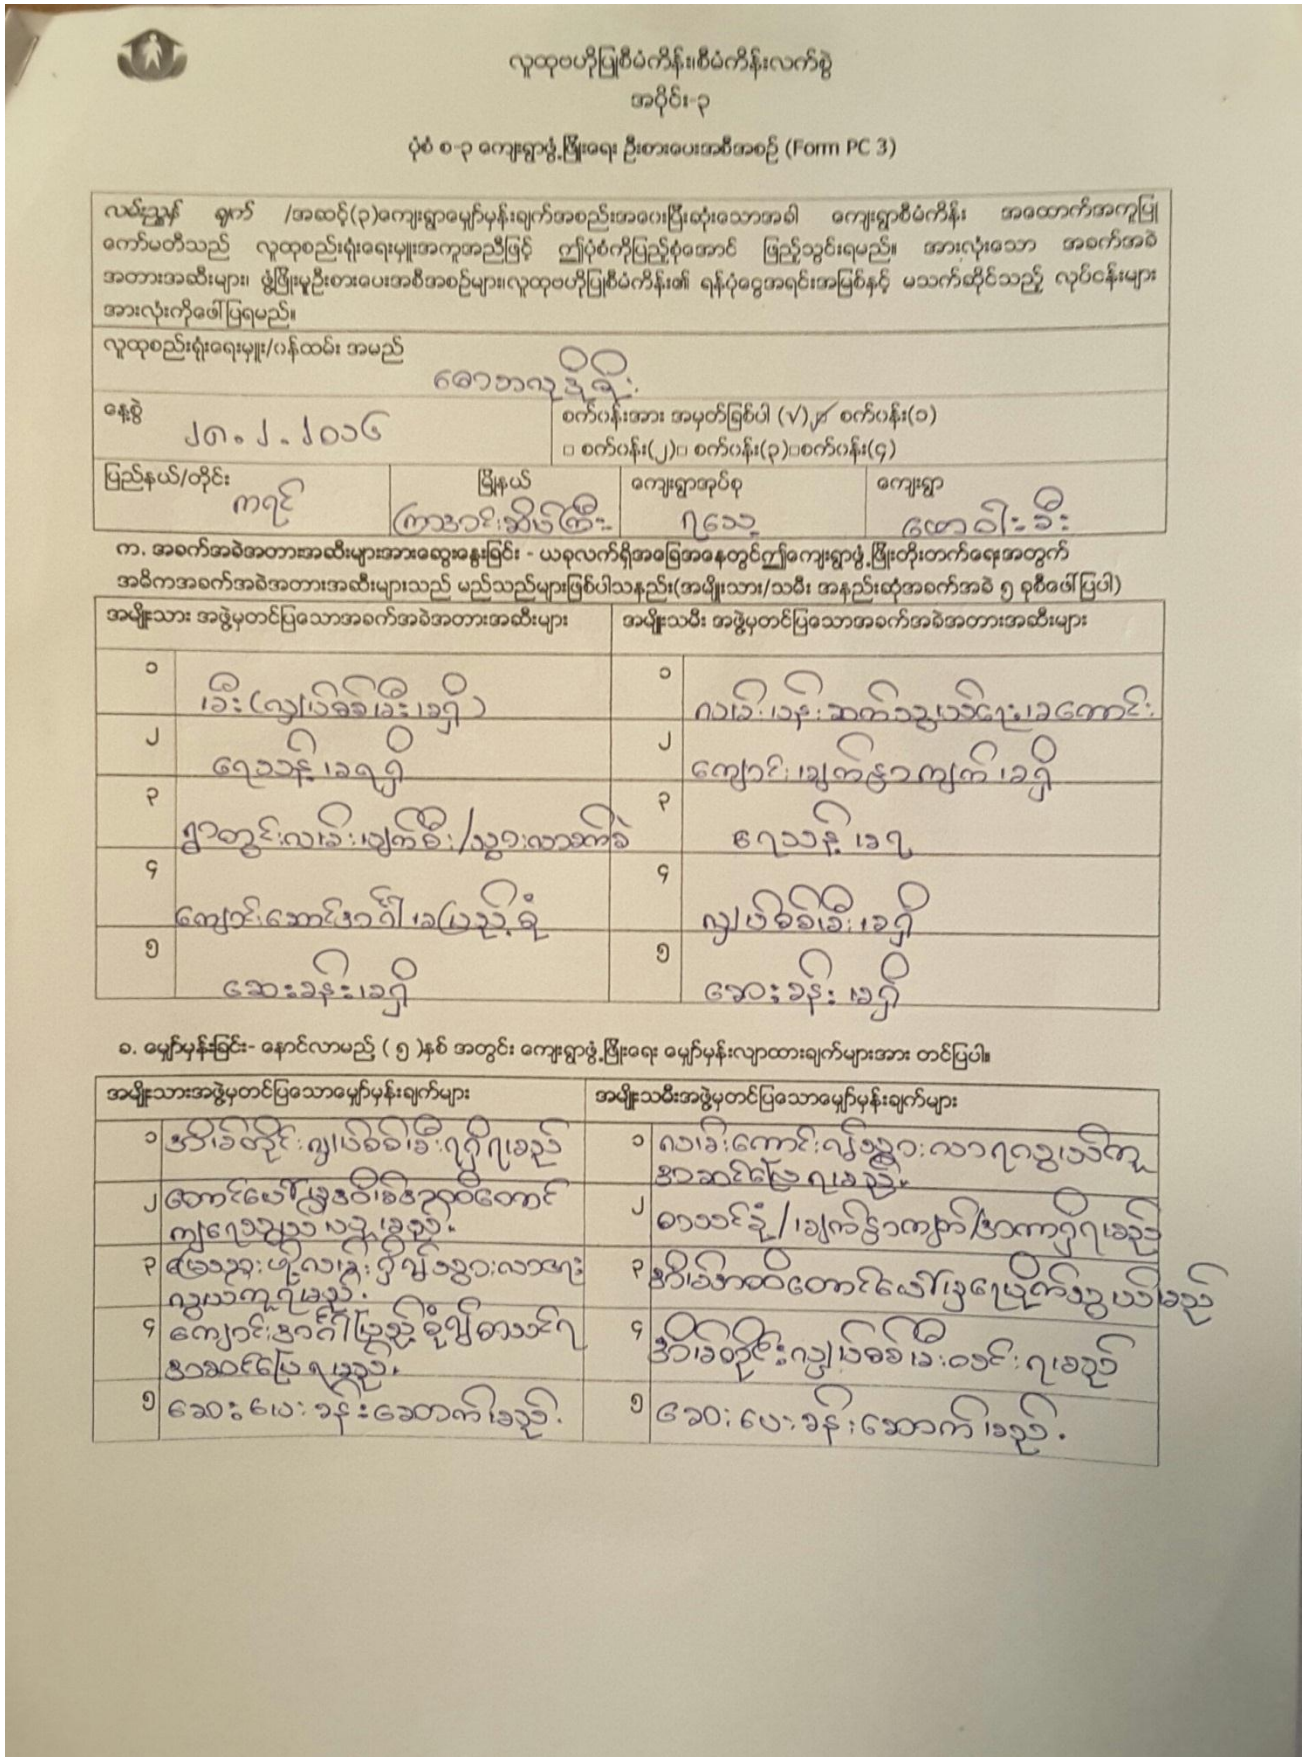 လူထုဗဟိုပြုစီမံကိန်း၊စီမံကိန်းလက်စွဲ
အပိုင်း-၃
ပုံစံ စ-၃ ကျေးရွာဖွံ့ဖြိုးရေး ဦးစားပေးအစီအစဉ် (Form PC 3)
လမ်းညွှန် ချက် /အဆင့်(၃)ကျေးရွာမျှော်မှန်းချက်အစည်းအဝေးပြီးဆုံးသောအခါ ကျေးရွာစီမံကိန်း အထောက်အကူပြု
ကော်မတီသည် လူထုစည်းရုံးရေးမှူးအကူအညီဖြင့် ဤပုံစံကိုပြည့်စုံအောင် ဖြည့်သွင်းရမည်။ အားလုံးသော အခက်အခဲ
အတားအဆီးများ၊ ဖွံ့ဖြိုးမှုဦးစားပေးအစီအစဉ်များ၊လူထုဗဟိုပြုစီမံကိန်း၏ ရန်ပုံငွေအရင်းအမြစ်နှင့် မသက်ဆိုင်သည့် လုပ်ငန်းများ
အားလုံးကိုဖေါ်ပြရမည်။
လူထုစည်းရုံးရေးမှူး/ဝန်ထမ်း အမည်
နေ့စွဲ
၂၈.၂.၂၀၁၆
စက်ဝန်းအား အမှတ်ခြစ်ပါ (√) စက်ဝန်း(၁)
□ စက်ဝန်း(၂)□ စက်ဝန်း(၃)□စက်ဝန်း(၄)
ပြည်နယ်/တိုင်း မြို့နယ် ကျေးရွာအုပ်စု ကျေးရွာ
ကရင် ကြာအင်းဆိပ်ကြီး ရသေ့
က. အခက်အခဲအတားအဆီးများအားဆွေးနွေးခြင်း - ယခုလက်ရှိအခြေအနေတွင်ဤကျေးရွာဖွံ့ဖြိုးတိုးတက်ရေးအတွက်
အဓိကအခက်အခဲအတားအဆီးများသည် မည်သည်များဖြစ်ပါသနည်း(အမျိုးသား/သမီး အနည်းဆုံအခက်အခဲ ၅ ခုစီဖေါ်ပြပါ)
အမျိုးသား အဖွဲ့မှတင်ပြသောအခက်အခဲအတားအဆီးများ အမျိုးသမီး အဖွဲ့မှတင်ပြသောအခက်အခဲအတားအဆီးများ
၁ မီး(လျှပ်စစ်မီးမရှိ) ၁ လမ်းပန်းဆက်သွယ်ရေးမကောင်း
၂ ရေသန့်မရရှိ ၂ ကျောင်းမျက်နှာကျက်မရှိ
၃ ရွာတွင်းလမ်းပျက်စီး/သွားလာခက်ခဲ ၃ ရေသန့်မရ
၄ ကျောင်းဆောင်အင်္ဂါမပြည့်စုံ ၄ လျှပ်စစ်မီးမရှိ
၅ ဆေးခန်းမရှိ ၅ ဆေးခန်းမရှိ
ခ. မျှော်မှန်းခြင်း- နောင်လာမည် ( ၅ )နှစ် အတွင်း ကျေးရွာဖွံ့ဖြိုးရေး မျှော်မှန်းလျာထားချက်များအား တင်ပြပါ။
အမျိုးသားအဖွဲ့မှတင်ပြသောမျှော်မှန်းချက်များ အမျိုးသမီးအဖွဲ့မှတင်ပြသောမျှော်မှန်းချက်များ
၁ အိမ်တိုင်းလျှပ်စစ်မီးရရှိရမည် ၁ လမ်းကောင်း၍သွားလာရလွယ်ကူ
အဆင်ပြေရမည်.
၂ တောင်ပေါ်မှအိမ်အထိတောင် ၂ စာသင်ခုံ/မျက်နှာကျက်/အကာရှိရမည်
ကျရေသွယ်ယူမည်.
၃ မြေသားဖို့လမ်းရှိ၍သွားလာရေး ၃ အိမ်အထိတောင်ပေါ်မှရေပိုက်သွယ်မည်
လွယ်ကူရမည်.
၄ ကျောင်းအင်္ဂါပြည့်စုံ၍စာသင်ရ ၄ အိမ်တိုင်းလျှပ်စစ်မီးဝင်းရမည်
အဆင်ပြေရမည်.
၅ ဆေးပေးခန်းဆောက်မည်. ၅ ဆေးပေးခန်းဆောက်မည်.